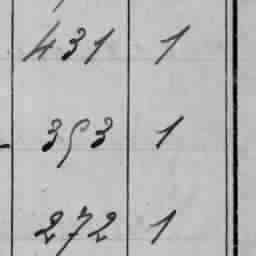 431 1
353 1
272 1